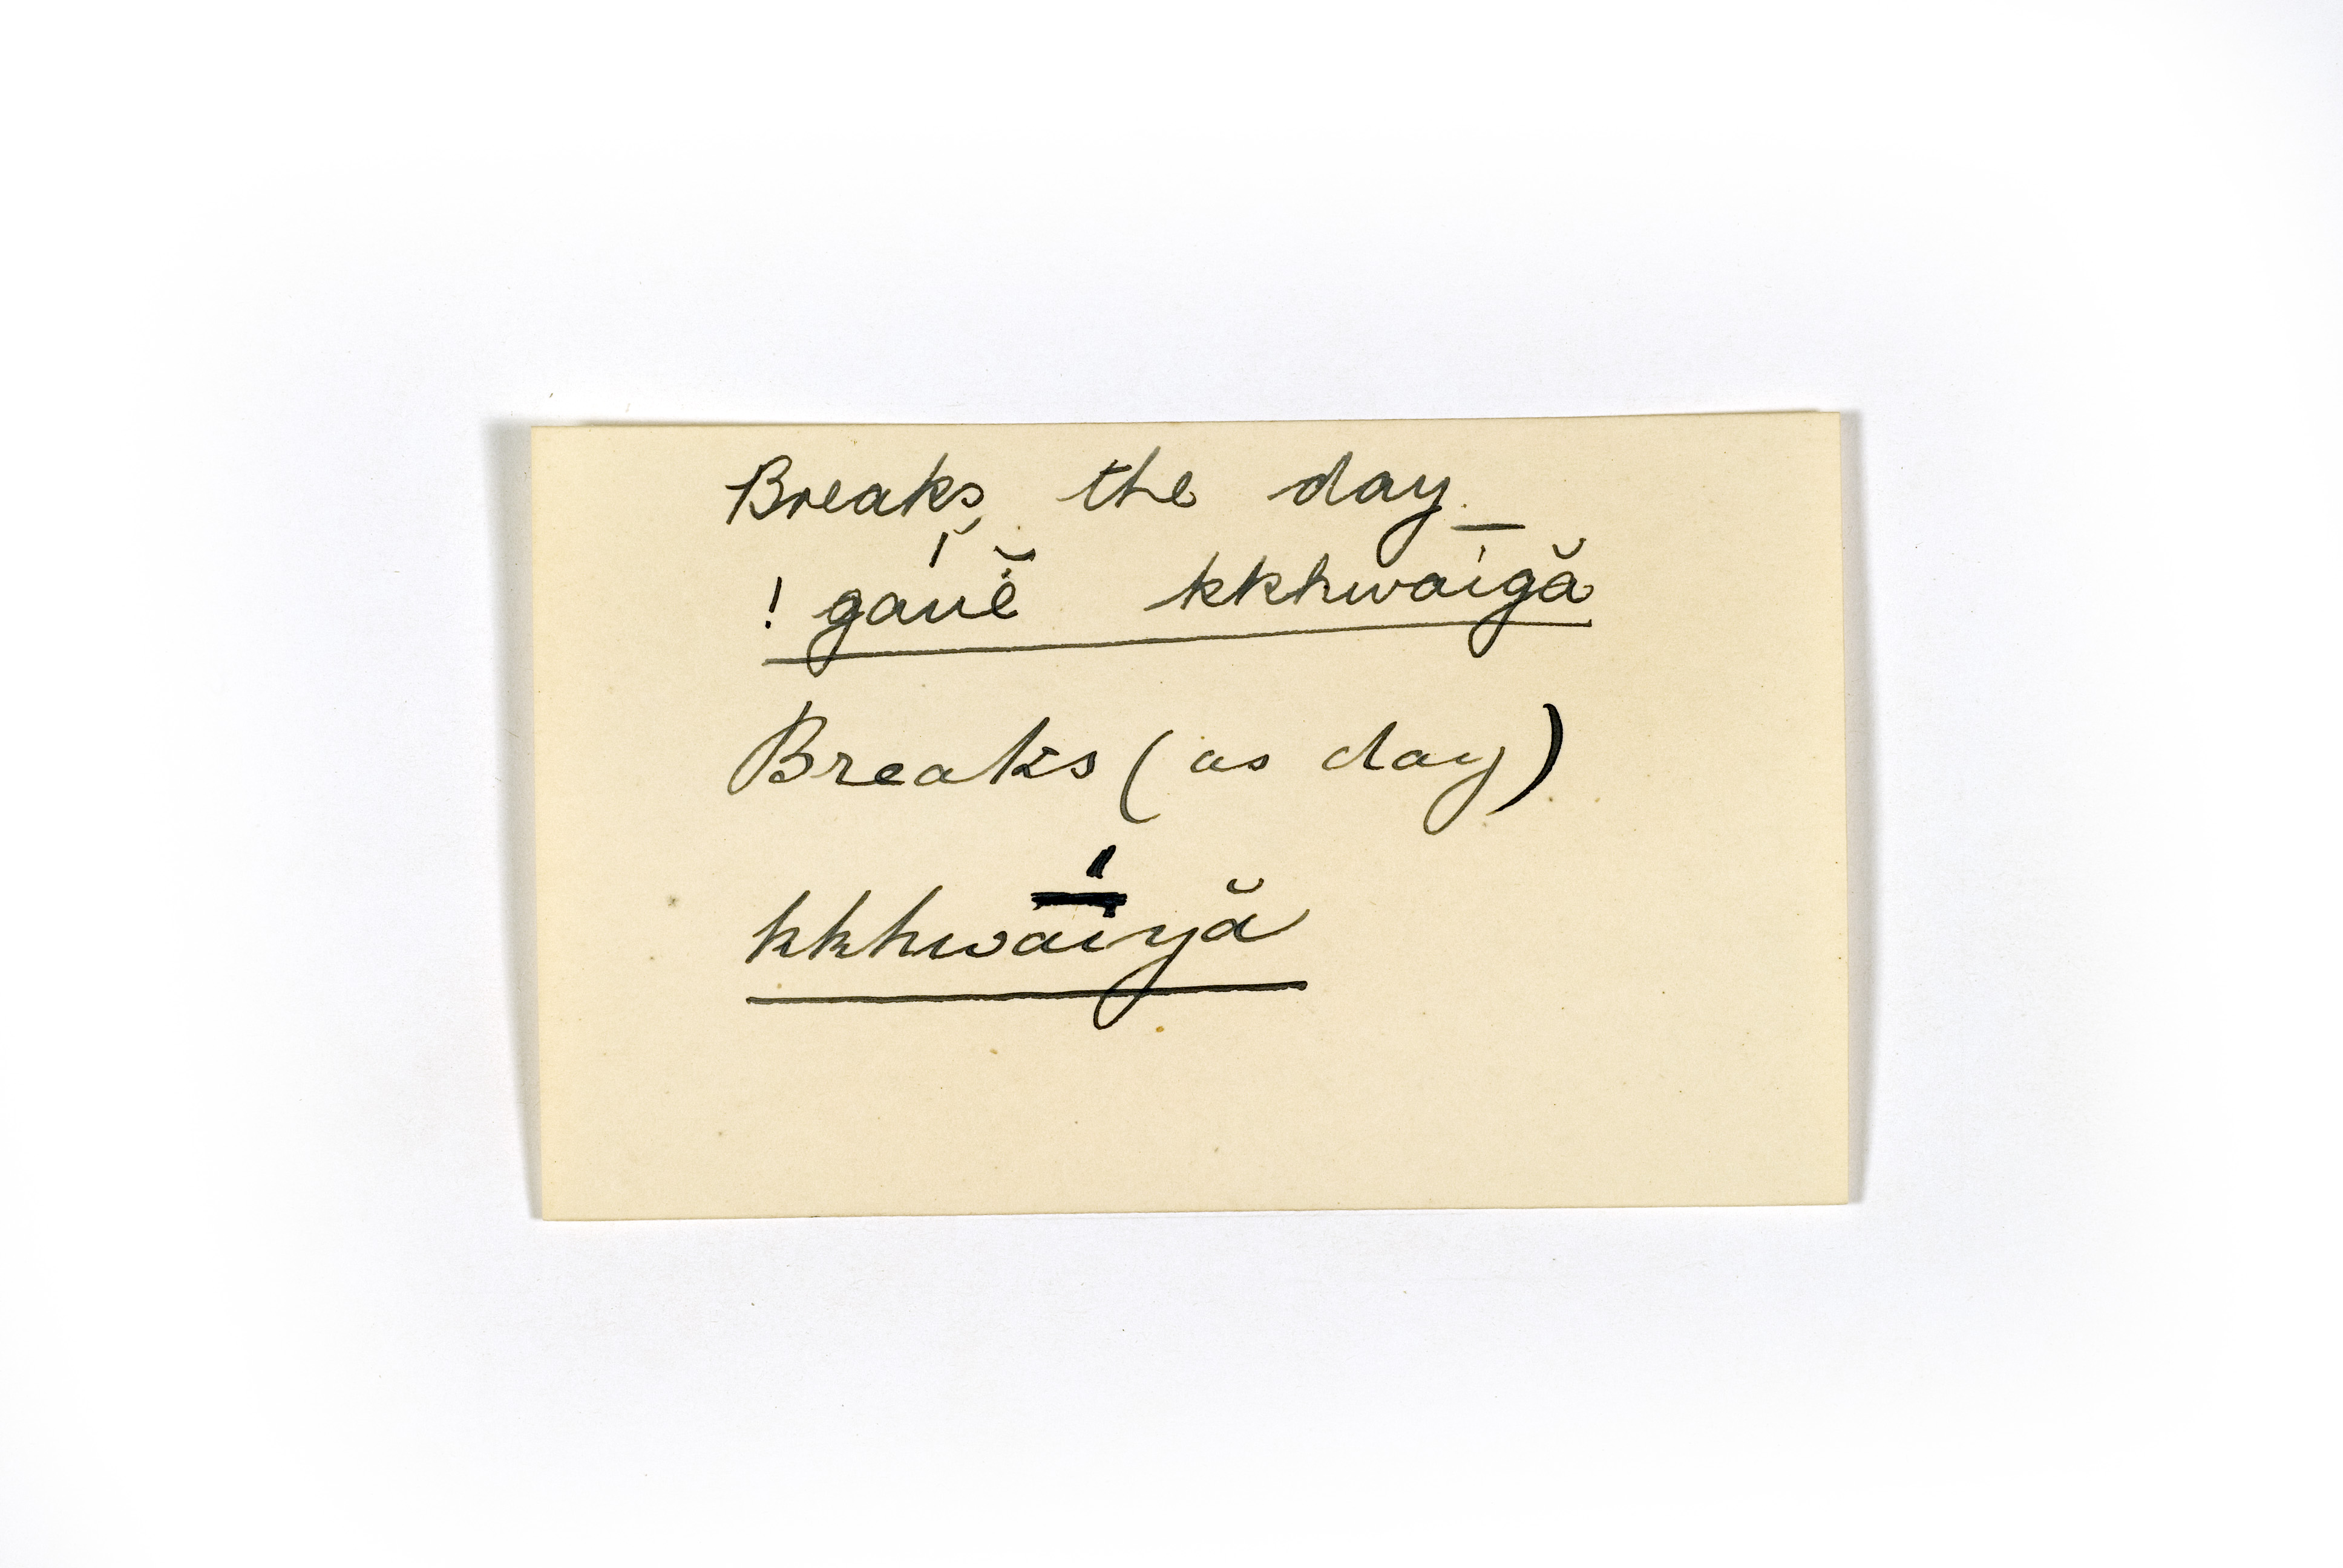 Breaks, the day_
! gáuĕ kkhwaigă
Breaks (as day)
kkhwa̅í̅yă